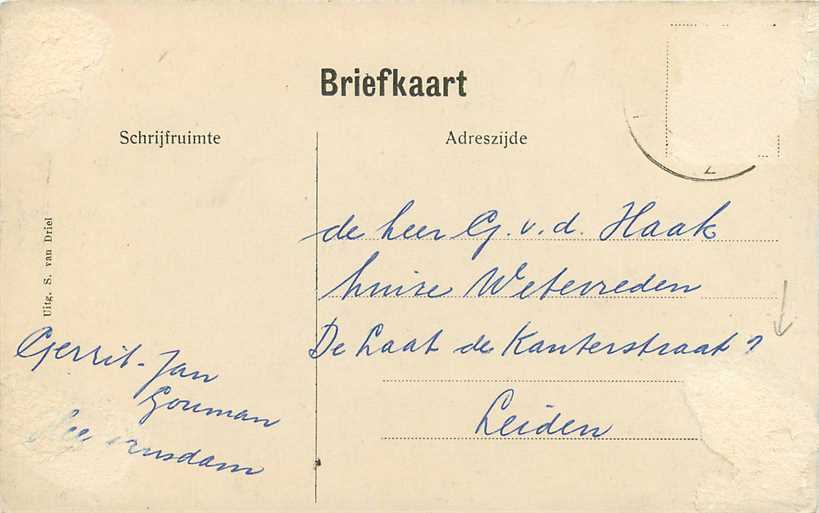 Briefkaart
Schrijfruimte
Adreszijde
Uitg. S. van Driel
de heer G. v. d. Haak
huize Weltevreden
De Laat de Kanterstraat 7
Leiden
Gerrit-Jan
Gouman